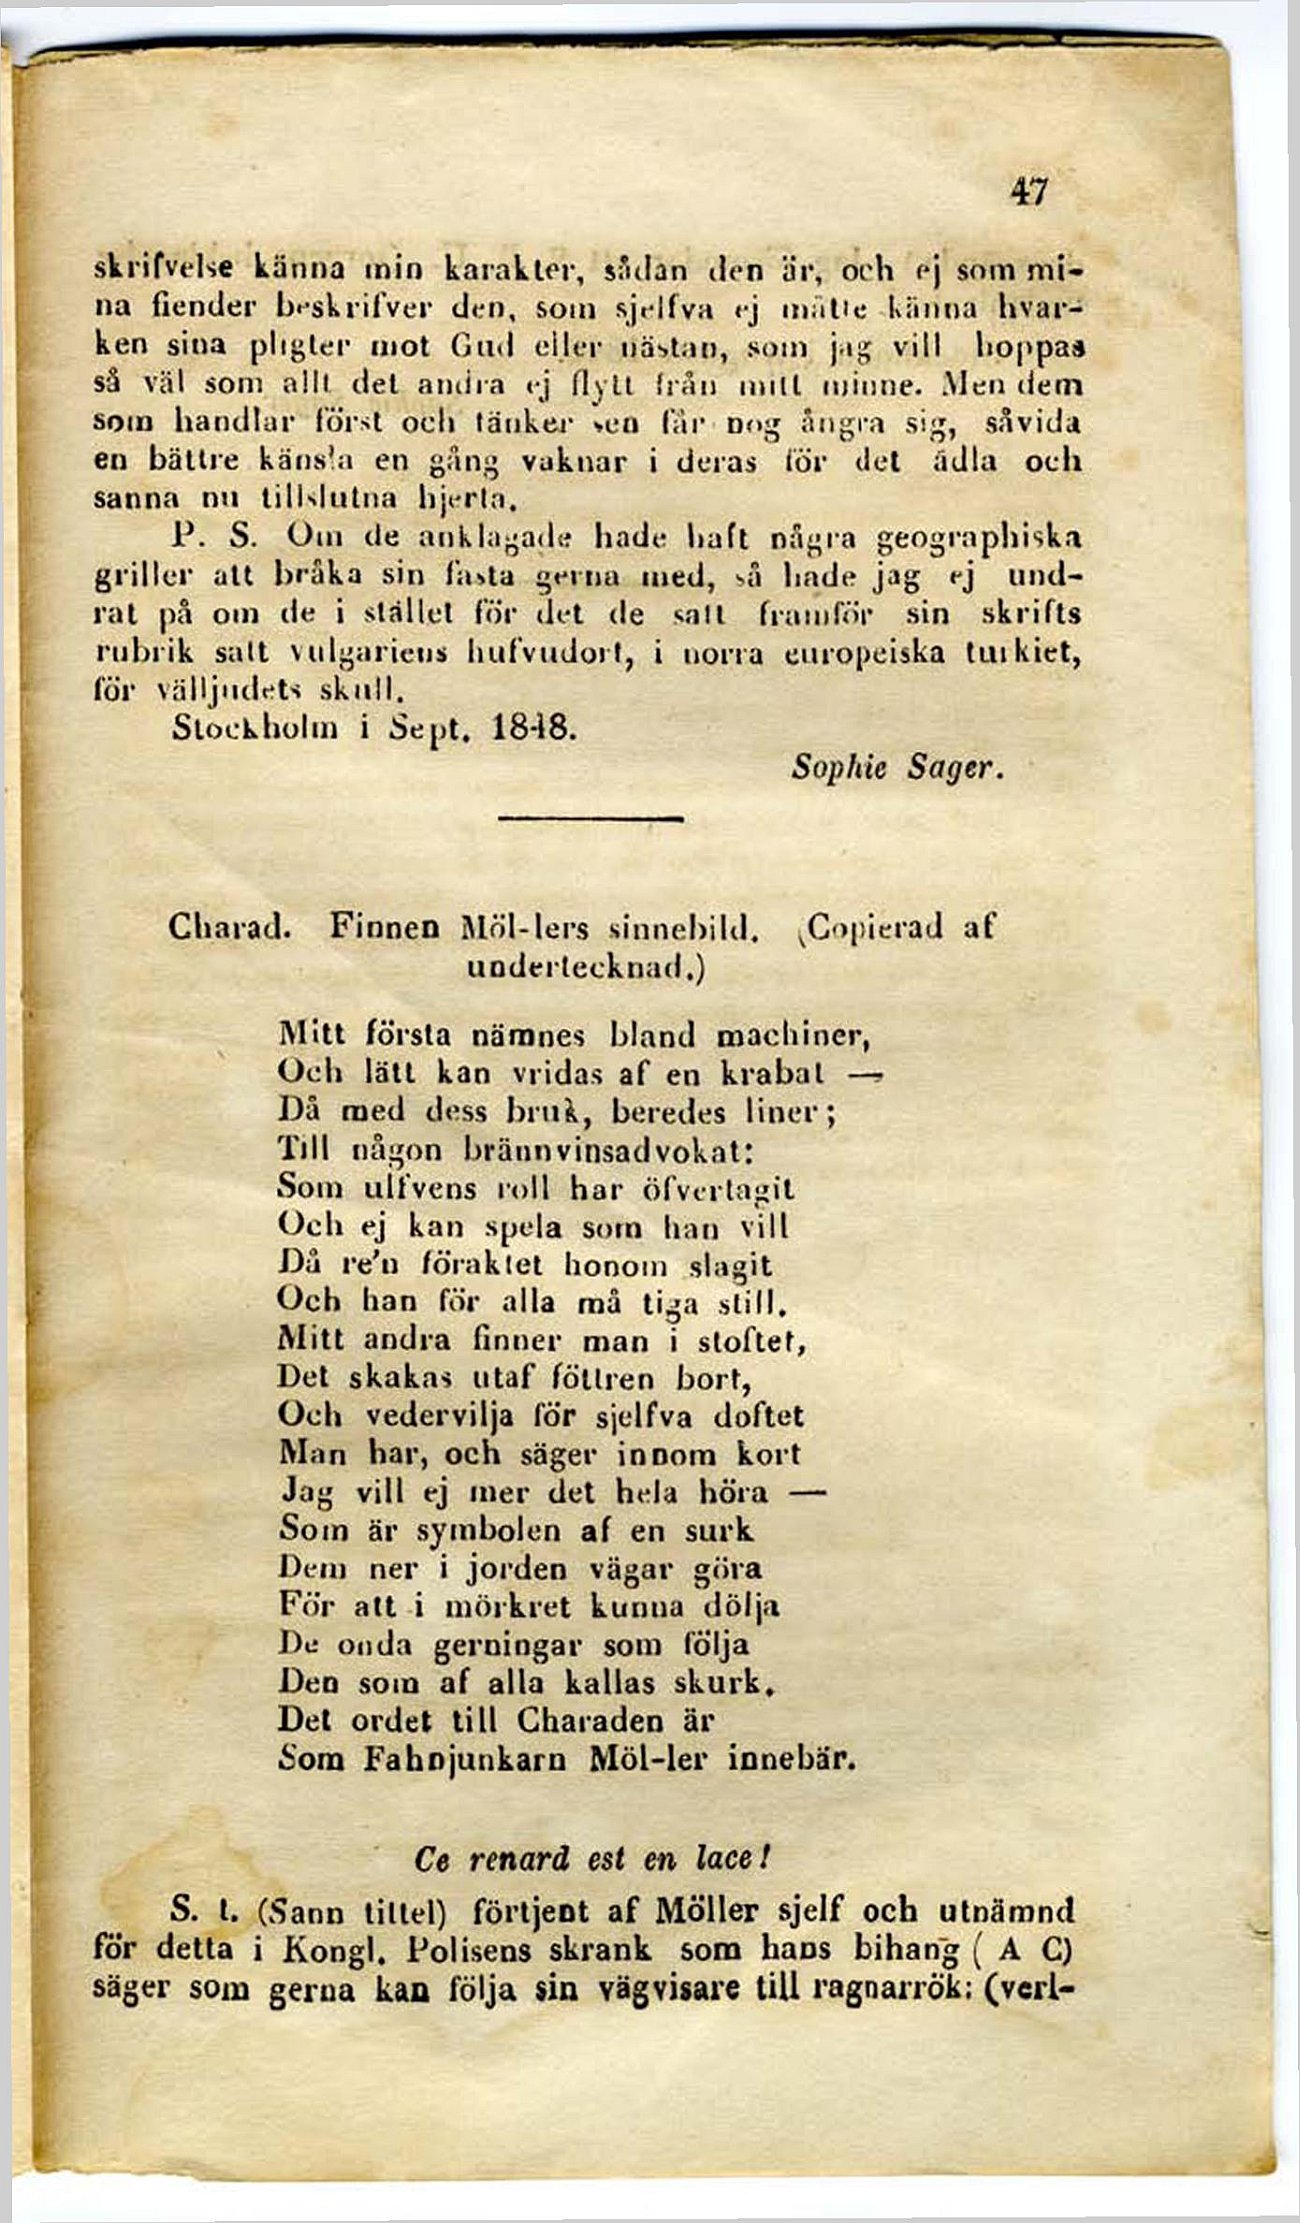 47
skrifvelse känna min karakter, sådan den är, och ej som mi-
na fiender beskrifver den, som sjelfva ej måtte känna hvar-
ken sina pligter mot Gud eller nästan, som jag vill hoppas
så väl som allt det andra ej flytt från mitt minne. Men dem
som handlar först och tänker sen får nog ångra sig, såvida
en bättre känsla en gång vaknar i deras för det ädla och
sanna nu tillslutna hjerta.
P. S. Om de anklagade hade haft några geographiska
griller att bråka sin fasta gerna med, så hade jag ej und-
rat på om de i stället för det de satt framför sin skrifts
rubrik satt vulgariens hufvudort, i norra europeiska turkiet,
för välljudets skull.
Stockholm i Sept. 1848.
Sophie Sager.
Charad. Finnen Möl-lers sinnebild. (Copierad af
undertecknad.)
Mitt första nämnes bland machiner,
Och lätt kan vridas af en krabat —
Då med dess bruk, beredes liner;
Till någon brännvinsadvokat:
Som ulfvens roll har öfvertagit
Och ej kan spela som han vill
Då re'n föraktet honom slagit
Och han för alla må tiga still.
Mitt andra finner man i stoftet,
Det skakas utaf föttren bort,
Och vedervilja för sjelfva doftet
Man har, och säger innom kort
Jag vill ej mer det hela höra —
Som är symbolen af en surk
Dem ner i jorden vägar göra
För att i mörkret kunna dölja
De onda gerningar som följa
Den som af alla kallas skurk.
Det ordet till Charaden är
Som Fahnjunkarn Möl-ler innebär.
Ce renard est en lace!
S. t. (Sann tittel) förtjent af Möller sjelf och utnämnd
för detta i Kongl. Polisens skrank som hans bihang ( A C)
säger som gerna kan följa sin vägvisare till ragnarrök: (verl-